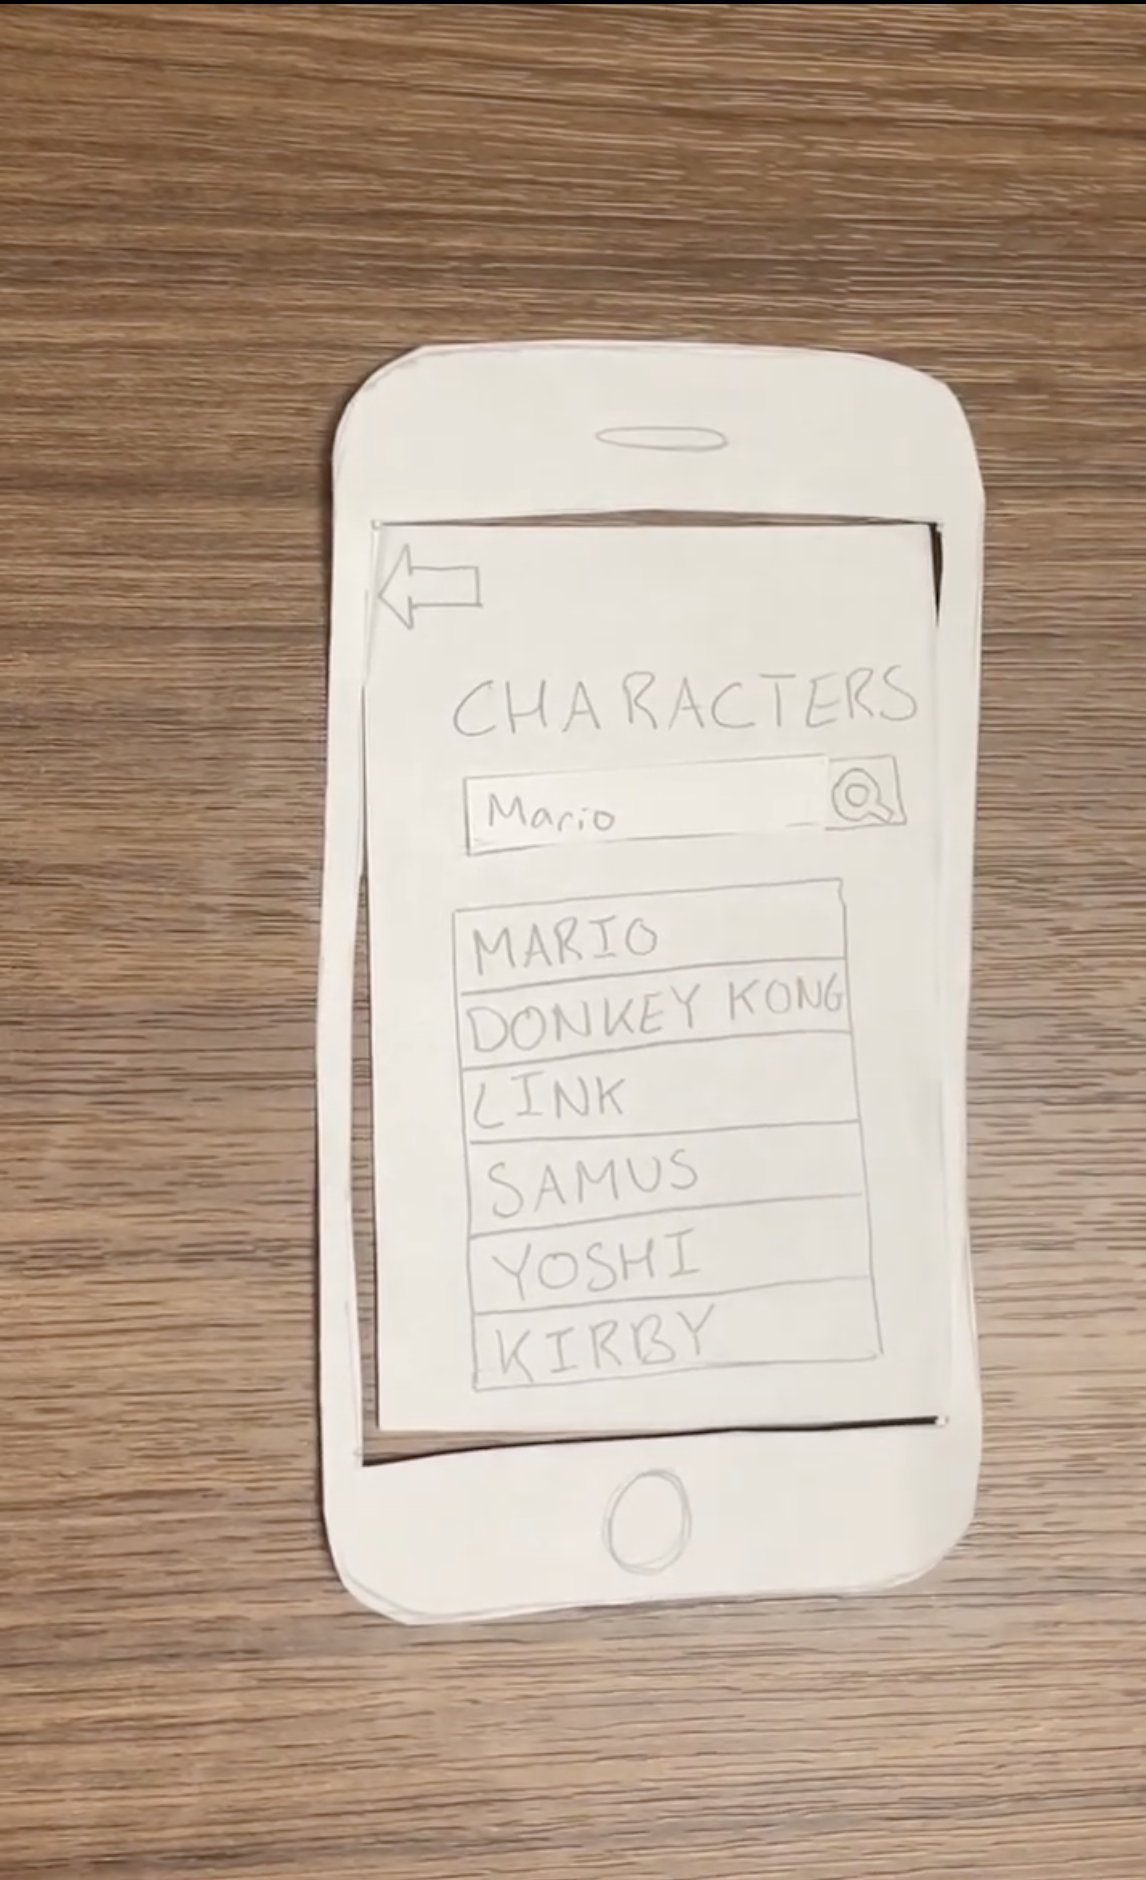 CHARACTERS
Mario
MARIO
DONKEY KONG
LINK
SAMUS
YOSHI
KIRBY